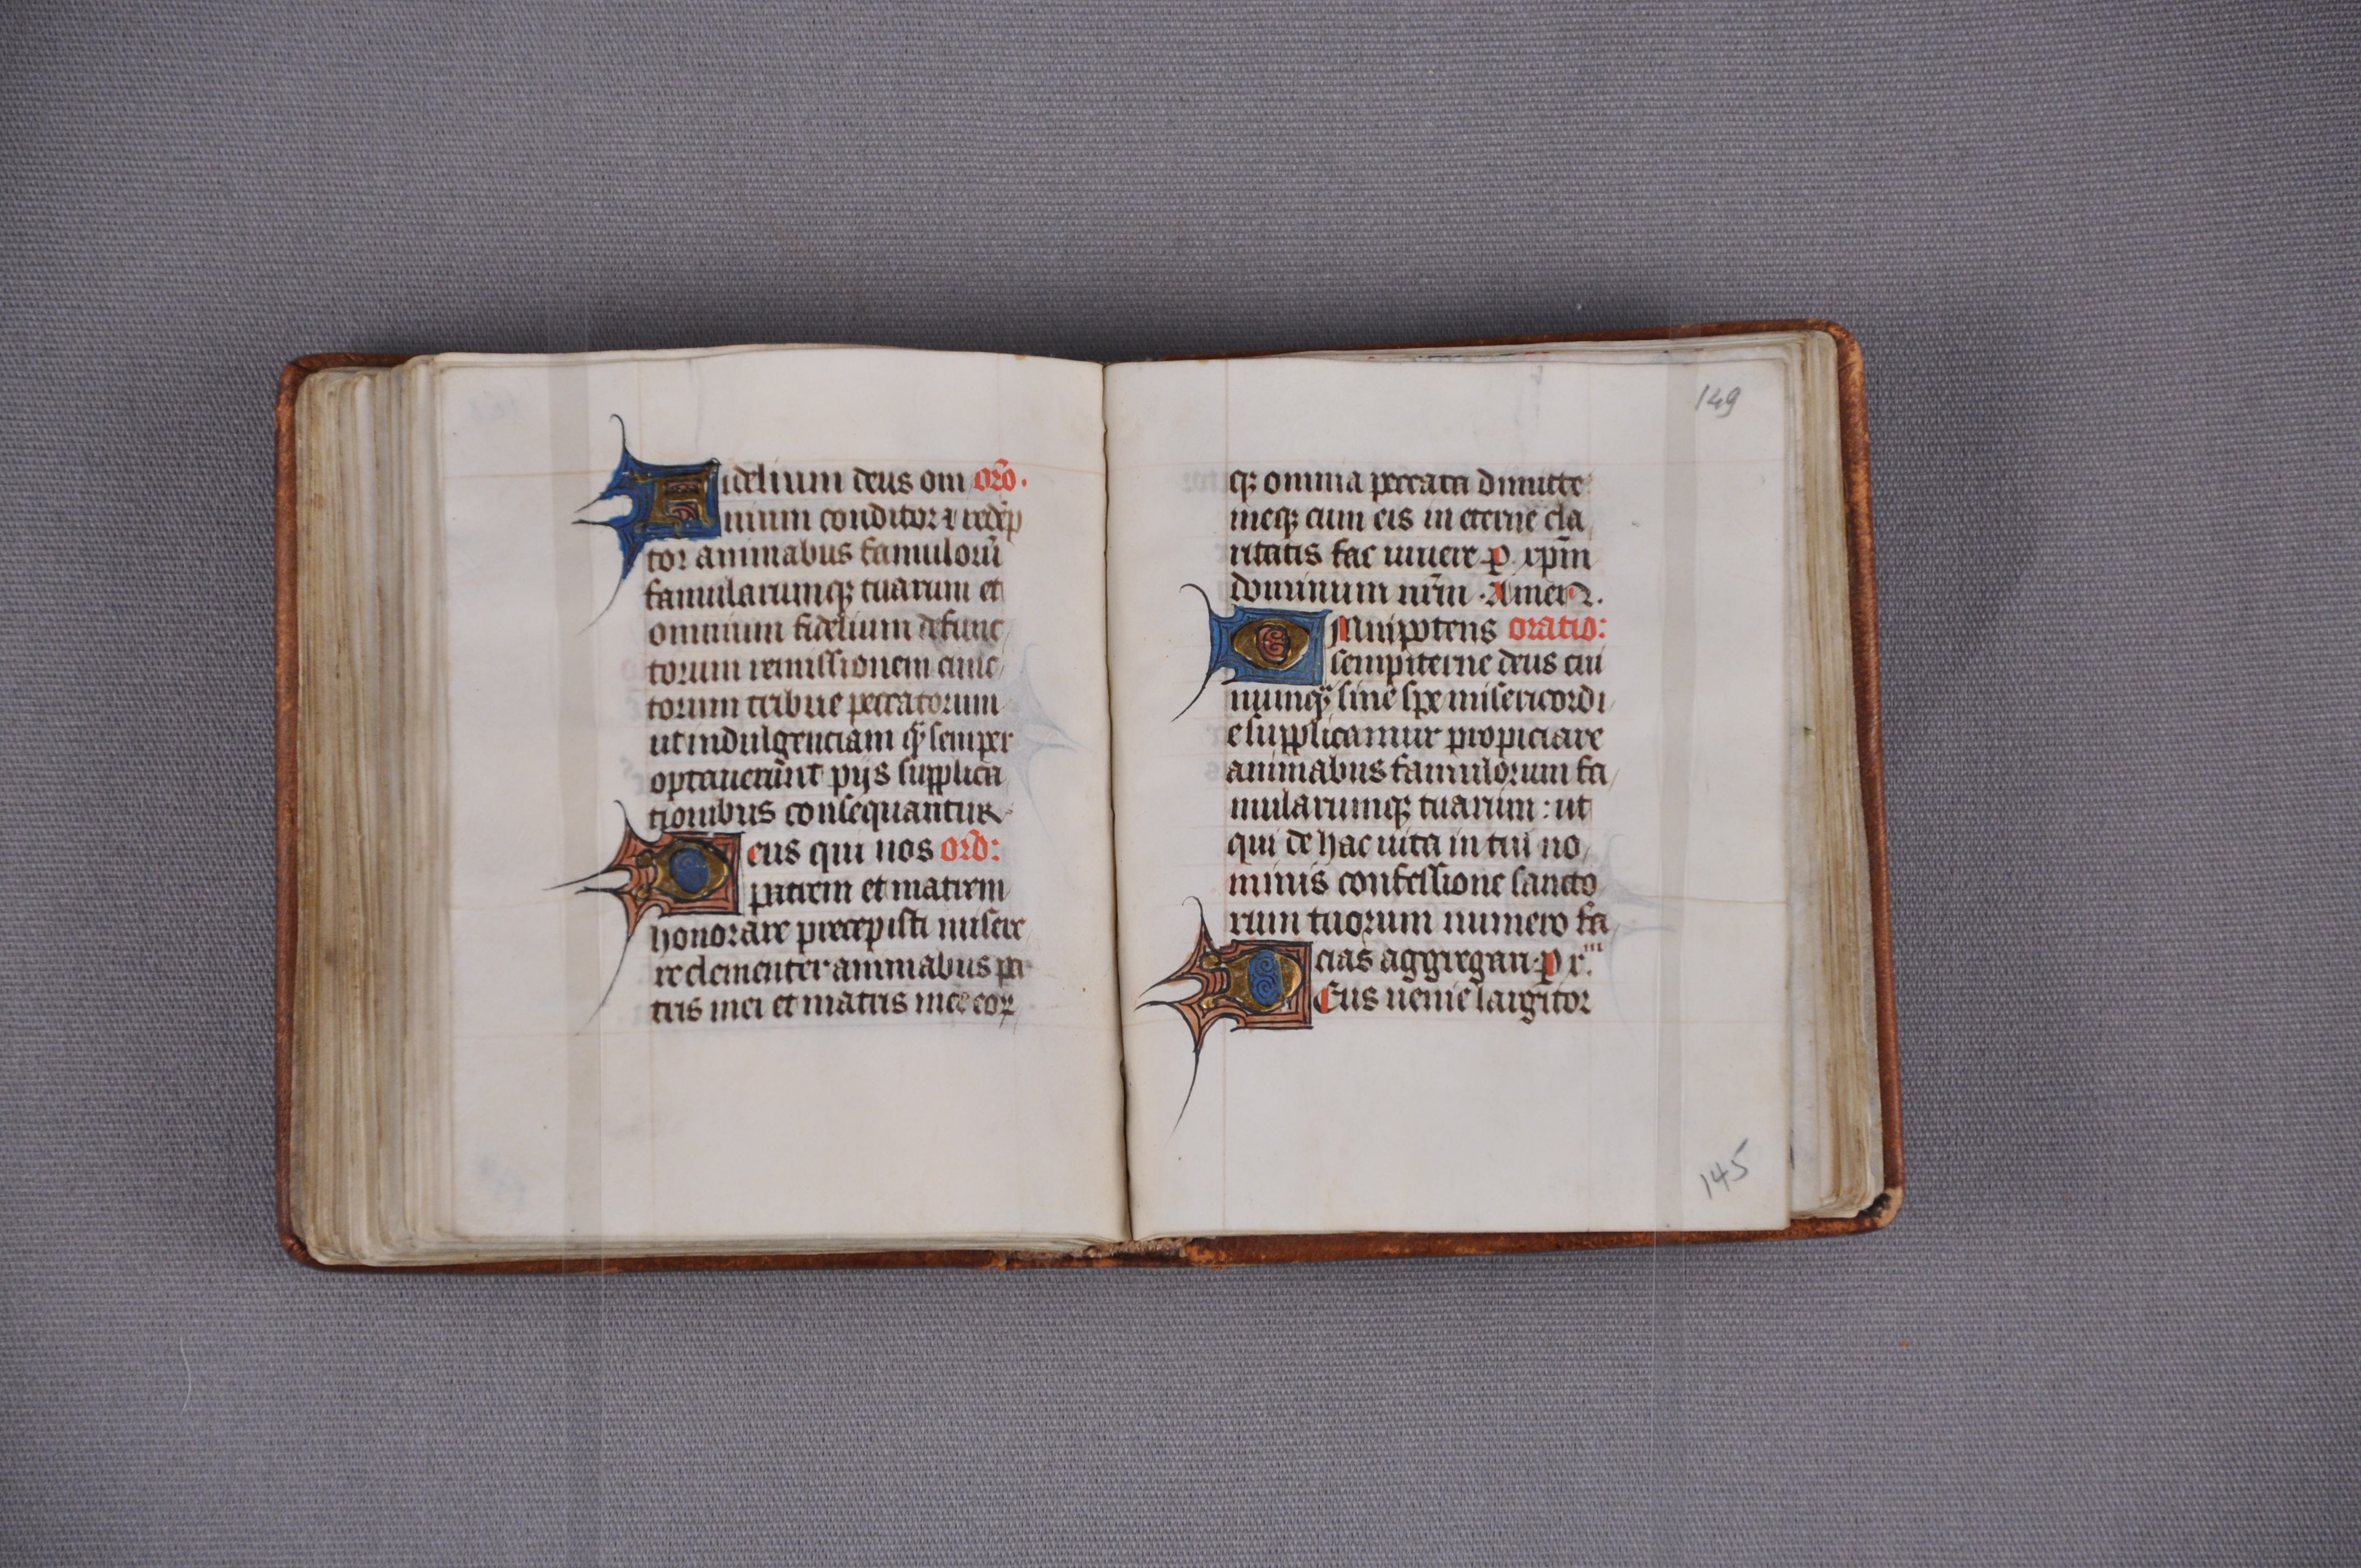 Fidelium deus om oro͞.
nium conditor ⁊ rede͞p
tor animabus famuloru͞
famularumqꝫ tuarum et
omnium fidelium defunc
torum remissionem cunc
torum tribue peccatorum
ut indulgenciam qͣ semper
optaueru͞nt pijs supplica
tionibus consequantur
Deus qui nos oro͞:
patrem et matrem
honorare precepisti misere
re clementer animabus pa
tris mei et matris mee eoꝝ
149
qꝫ omnia peccata dimitte
meqꝫ cum eis in eterne cla
ritatis fac uiuere p. xp͞m
dominum nr͞m. Amen.
Omnipotens oratio:
sempiterne deus cui
numqͣ sine spe misericordi
e supplicamur propiciare
animabus famulorum fa
mularumqꝫ tuarum: ut
qui de hac uita in tui no
minis confessione sancto
rum tuorum numero fa
cias aggregari. p x.ͫ
Deus uenie largitor
145